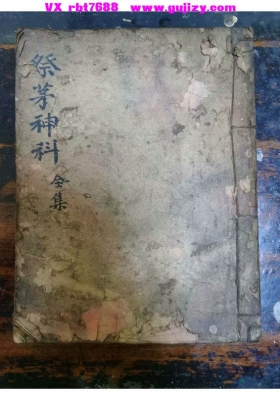 VX rbt7688 www.guijzy.com
祭茅神科 全集